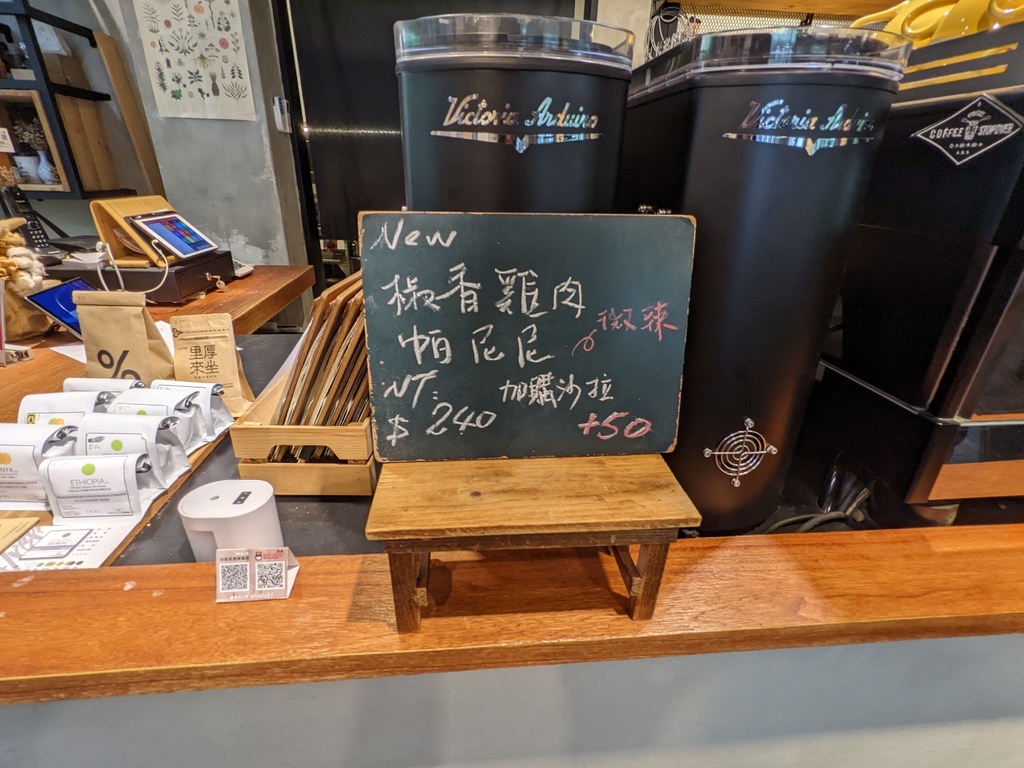 Victoria Arduino
Victoria Arduino
COFFEE STOPOVER
New
椒香雞肉
帕尼尼
微辣
NT.
$ 240
加購沙拉
+50
%
里厚
來坐
ETHIOPIA